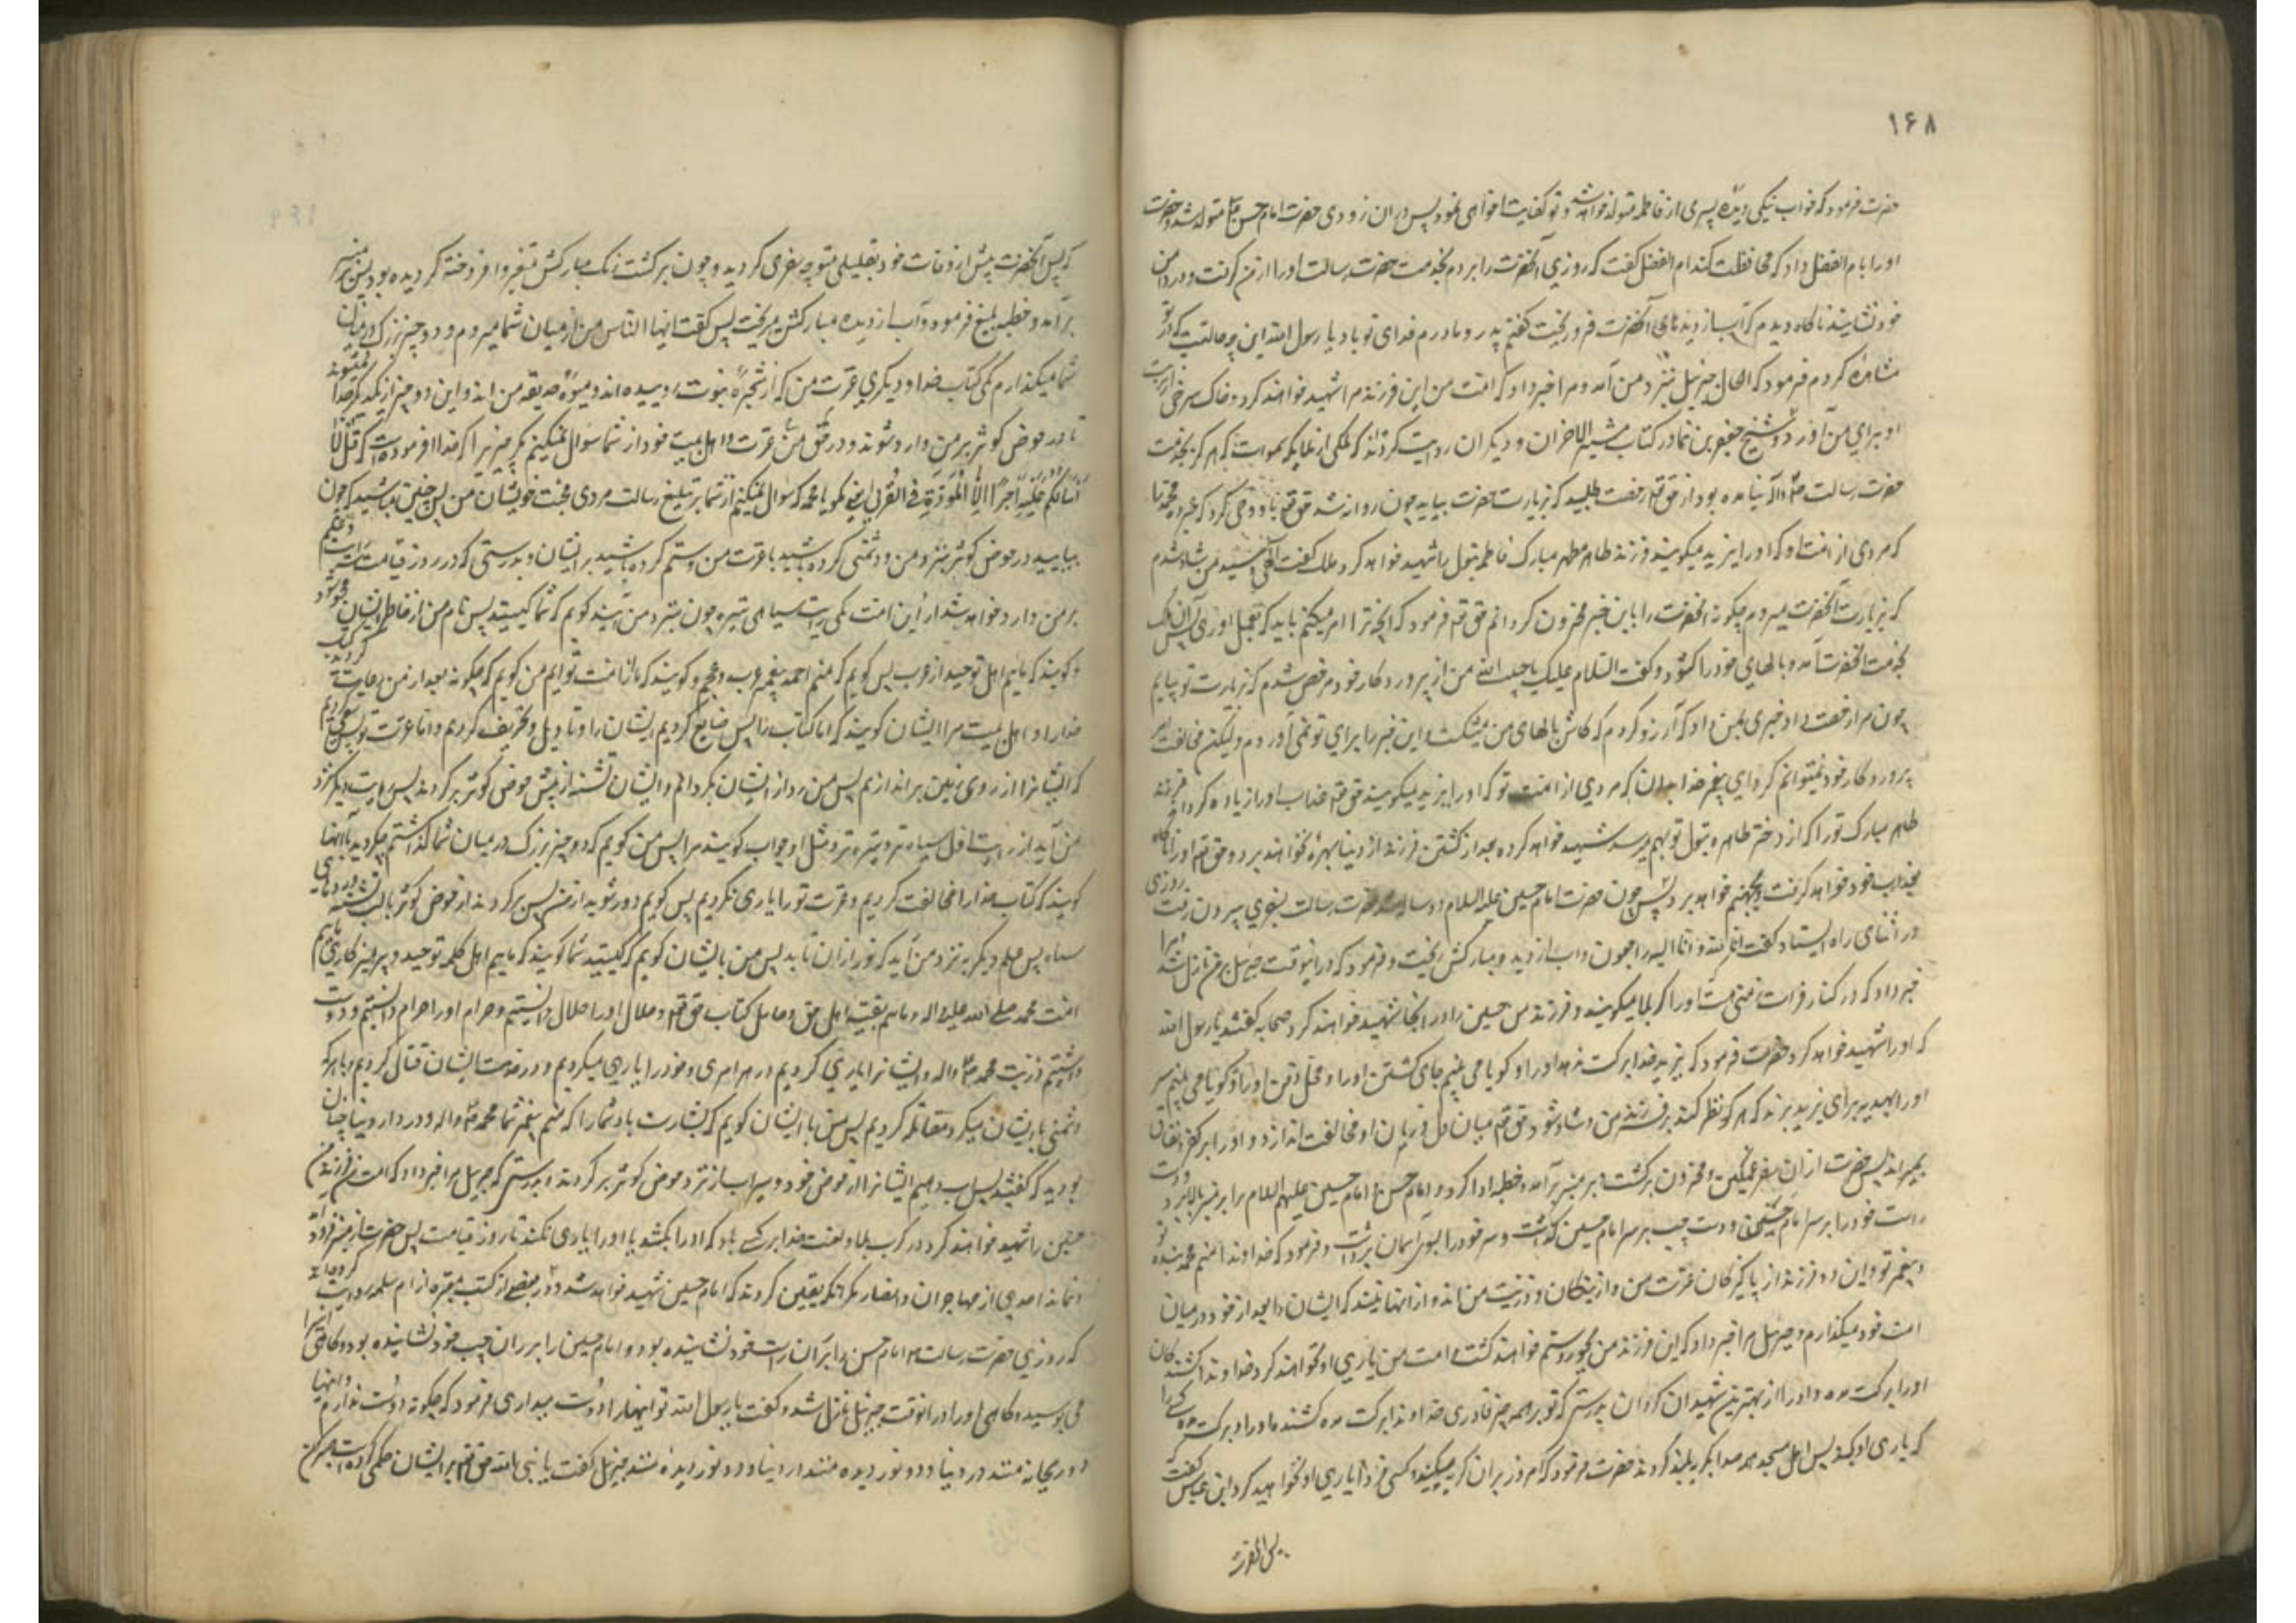 ۱۶۸
حضرت فرمود که خواب نیکی دیدهٔ پسری از فاطمه متولد خواهد شد و تو کفایت او خواهی نمود پس در ان زودی حضرت امام حسن متولد شد و حضرت
او را بام الفضل داد که محافظت کند ام الفضل گفت که روزی آنحضرت را بردم بخدمت حضرت رسالت او را از من گرفت و در دامن
خود نشانید ناگاه دیدم که آب از دیدهای آنحضرت فرو ریخت گفتم پدر و مادرم فدای تو باد یا رسول الله این چه حالتیست که از تو
مشاهده کردم فرمود که الحال جبرئیل بنزد من آمد و مرا خبر داد که امت من این فرزند مرا شهید خواهند کرد و خاک سرخی از تربت
او برای من آورد و شیخ جعفر بن نما در کتاب مثیر الاحزان و دیگران روایت کرده‌اند که ملکی از ملایکه سموات که هرگز بخدمت
حضرت رسالت ص و آله نیامده بود از حق تعم رخصت طلبید که بزیارت حضرت بیاید چون روانه شد حق تعم باو وحی کرد که خبر ده محمد را
که مردی از امت او که او را یزید میگویند فرزند طاهر مطهر مبارک فاطمه بتول را شهید خواهد کرد ملک گفت الهی من شاد شدم
که بزیارت آنحضرت میروم چگونه آنحضرت را باین خبر محزون گردانم حق تعم فرمود که آنچه ترا امر میکنم باید که بعمل اوری پس آن ملک
بخدمت آنحضرت آمد و بالهای خود را گشود و گفت السلام علیک یا حبیب الله من از پروردگار خود مرخص شدم که بزیارت تو بیایم
چون مرا رخصت داد خبری بمن داد که آرزو کردم که کاش بالهای من میشکست و این خبر را برای تو نمی آوردم ولیکن مخالفت امر
پروردگار خود نمیتوانم کرد ای پیغمبر خدا بدان که مردی از امت تو که او را یزید میگویند حق تعم عذاب او را زیاده گرداند فرزند
طاهر مبارک تو را که از دختر طاهره بتول تو بهم رسد شهید خواهد کرد و بعد از کشتن فرزند تو از دنیا بهره نخواهد برد و حق تعم او را ناگاه
بعذاب خود خواهد گرفت و بجهنم خواهد برد پس چون حضرت امام حسین علیه السلام دو ساله شد حضرت رسالت بسفری بیرون رفت روزی
در اثنای راه ایستاد گفت انا لله و انا الیه راجعون و آب از دیدهٔ مبارکش ریخت و فرمود که در اینوقت جبرئیل بر من نازل شد مرا
خبر داد که در کنار فرات زمینی هست او را کربلا میگویند و فرزند من حسین را در آنجا شهید خواهند کرد صحابه گفتند یا رسول الله
که او را شهید خواهد کرد حضرت فرمود که یزید خدا برکت ندهد او را و گویا می بینم جای کشتن او را و محل دفن او را و گویا می بینم سر
او را بهدیه برای یزید برند که هر که نظر کند بر سر فرزند من و شاد شود حق تعم میان دل و زبان او مخالفت اندازد و او را بر کفر و نفاق
بمیراند پس حضرت از ان سفر غمگین و محزون برگشت و بر منبر برآمد و خطبه ادا کرد و امام حسن و امام حسین علیهم السلام را بر منبر بالا برد و دست
راست خود را بر سر امام حسن و دست چپ بر سر امام حسین گذاشت و سر خود را بسوی آسمان برداشت و فرمود که خداوندا منم محمد بنده تو
و پیغمبر تو و این دو فرزند از پاکیزگان عترت من و از نیکان و ذریت من اند و از انها نیند که ایشان را بعد از خود در میان
امت خود میگذارم و جبرئیل مرا خبر داد که این فرزند من بجور و ستم خواهند کشت و امت من یاری او نخواهند کرد خداوندا کشندگان
او را برکت مده و او را از بهترین شهیدان گردان بدرستی که تو بر همه چیز قادری خداوندا برکت مده کشنده او را و برکت مده کسی را
که یاری او نکند پس اهل مسجد همه صدا بگریه بلند کردند حضرت فرمود که امروز بر ان گریه میکنید و کسی فردا یاری او نخواهید کرد ابن عباس گفت که
پس آنحضرت
که پس آنحضرت پیش از وفات خود بقلیلی متوجه سفری گردید و چون برگشت رنگ مبارکش متغیر و افروخته گردیده بود پس بر منبر
برآمد و خطبه بلیغ فرمود و آب از دیدهٔ مبارکش میریخت پس گفت ایها الناس من از میان شما میروم و دو چیز بزرگ در میان
شما میگذارم یکی کتاب خدا و دیگری عترت من که از شجرهٔ نبوت روییده اند و میوهٔ حدیقه من اند و این دو چیز از یکدیگر جدا نمیشوند
تا در حوض کوثر بر من وارد شوند و در حق عترت و اهل بیت خود از شما سوال نمیکنم مگر چیزیرا که خدا فرموده است که قُل لا
اَسألکُم علیه اَجراً اِلّا المَوَدَّةَ فی القُربی یعنی بگو یا محمد که سوال نمیکنم از شما بر تبلیغ رسالت مزدی محبت خویشان من پس چنین مباشید که چون
بیایید در حوض کوثر بنزد من و دشمنی کرده باشید با عترت من و ستم کرده باشید بر ایشان و بدرستی که در روز قیامت سه رایت و علم
بر من وارد خواهد شد از این امت یکی رایت سیاهی تیره چون بنزد من آیند گویم که شما کیستید پس نام من از خاطر ایشان محو شود
و گویند که ماییم اهل توحید از عرب پس گویم که منم احمد پیغمبر عرب و عجم و گویند که ما از امت توایم من گویم که چگونه بعد از من رعایت کردید کتاب
خدا را و اهل بیت مرا ایشان گویند که اما کتاب را پس ضایع کردیم ایشان را و تاویل و تحریف کردیم و اما عترت تو پس سعی کردیم
که ایشانرا از روی زمین براندازیم پس من رو از ایشان بگردانم و ایشان تشنه از پیش حوض کوثر برگردند پس رایت دیگر نزد
من آید از رایت اول سیاه تر و تیره تر و مثل او جواب گویند مرا پس من گویم که دو چیز بزرگ در میان شما گذاشتم چه کردید با آنها
گویند که کتاب خدا را مخالفت کردیم و عترت تو را یاری نکردیم پس گویم دور شوید از من پس برگردند از حوض کوثر با لب تشنه و روهای
سیاه پس علم دیگر بنزد من آید که نور از ان تابد پس من بایشان گویم که کیستید شما گویند که ماییم اهل کلمه توحید و پرهیزکاری ماییم
امت محمد صلی الله علیه اله و ماییم بقیهٔ اهل حق و حامل کتاب حق تعم و حلال او را حلال دانستیم و حرام او را حرام دانستیم و دوست
داشتیم ذریت محمد ص و اله و ایشانرا یاری کردیم در هر امری و خود را یاری میکردیم و در خدمت ایشان قتال کردیم و با هر که
دشمنی بایشان میکرد مقاتله کردیم پس من با ایشان گویم که بشارت باد شما را که منم پیغمبر شما محمد ص و اله و در دار دنیا چنان
بودید که گفتید پس آب دهیم ایشانرا از حوض خود و سیراب از نزد حوض کوثر برگردند و بدرستی که جبرئیل مرا خبر داد که امت من فرزند من
حسین را شهید خواهند کرد در کربلا و لعنت خدا بر کسی باد که او را بکشد یا او را یاری نکند تا روز قیامت پس حضرت از منبر فرود آمد
و نماند احدی از مهاجران و انصار مگر آنکه یقین کردند که امام حسین شهید خواهد شد و در بعضی از کتب معتبره از ام سلمه روایت کرده اند
که روزی حضرت رسالت ص امام حسن را بر ان راست خود نشانیده بود و امام حسین را بر ران چپ خود نشانیده بود و گاهی انرا
می بوسید و گاهی او را در انوقت جبرئیل نازل شد و گفت یا رسول الله تو اینها را دوست میداری فرمود که چگونه دوست ندارم و اینها
دو ریحانه منند در دنیا و دو نور دیده منند جبرئیل گفت یا نبی الله حق تعم بر ایشان حکمی کرده است صبر کن